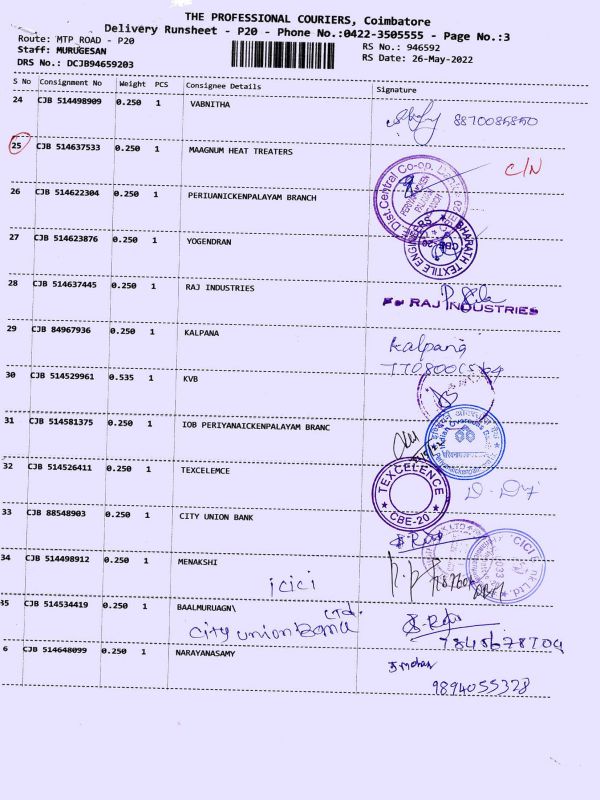 THE PROFESSIONAL COURIERS, Coimbatore
Delivery Runsheet - P20 - Phone No.:0422-3505555 - Page No.:3
Route: MTP_ROAD - P20
RS No.: 946592
Staff: MURUGESAN
RS Date: 26-May-2022
DRS No.: DCJB94659203
S No Consignment No Weight PCS Consignee Details Signature
24 CJB 514498909 0.250 1 VABNITHA
25 CJB 514637533 0.250 1 MAAGNUM HEAT TREATERS C/N
26 CJB 514622304 0.250 1 PERIUANICKENPALAYAM BRANCH
Dist. Central Co-op.
27 CJB 514623876 0.250 1 YOGENDRAN
BHARATH TEXTILE ENGINEERS CBE-20
28 CJB 514637445 0.250 1 RAJ INDUSTRIES
RAJ INDUSTRIES
29 CJB 84967936 0.250 1 KALPANA
Kalpana
30 CJB 514529961 0.535 1 KVB
31 CJB 514581375 0.250 1 IOB PERIYANAICKENPALAYAM BRANC
Indian Overseas Bank
32 CJB 514526411 0.250 1 TEXCELEMCE
TEXCELENCE CBE-20
33 CJB 88548903 0.250 1 CITY UNION BANK
34 CJB 514498912 0.250 1 MENAKSHI
icici
35 CJB 514534419 0.250 1 BAALMURUAGN\
Ltd.
City union Bank
6 CJB 514648099 0.250 1 NARAYANASAMY
9894055328